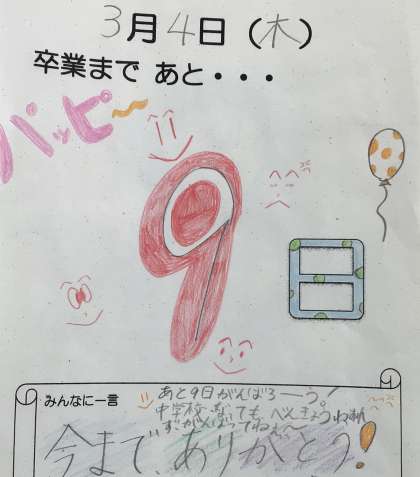 3月4日(木)
卒業まで あと・・・
ハッピー
9日
みんなに一言
あと9日がんばろーう!
中学校 なっても べんきょう
ずがんばってねー
今まで、ありがとう!